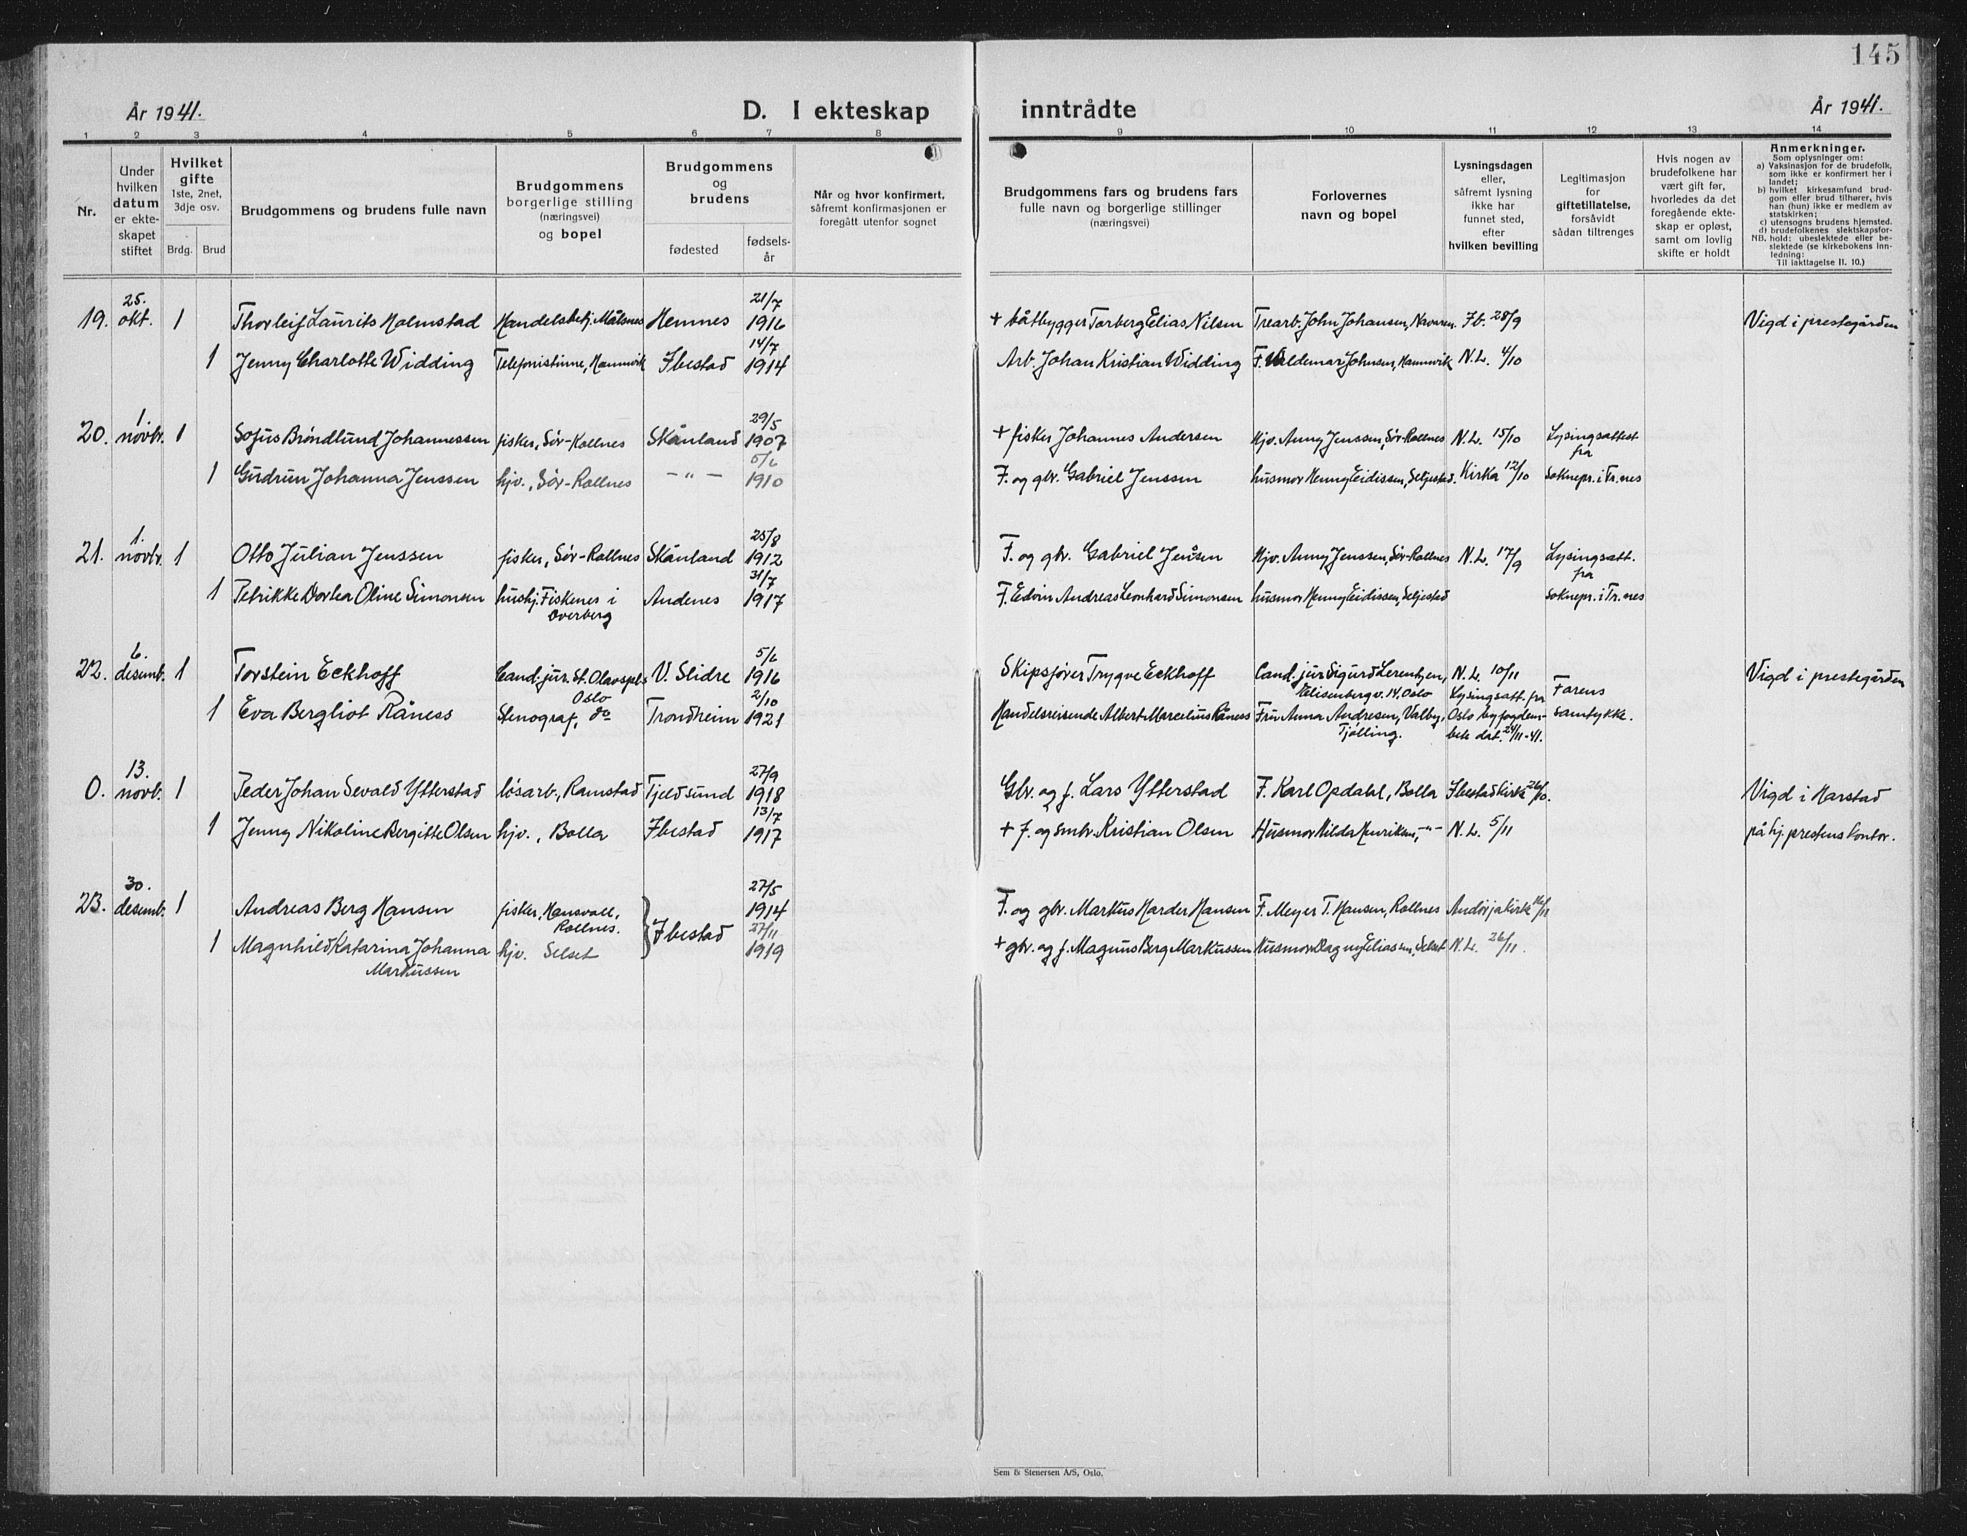 145
År 1941.
D. I ekteskap inntrådte
År 1941.
1 2 3 4 5 6 7 8 9 10 11 12 13 14
Nr.
Under hvilken datum er ekteskapet stiftet
Hvilket gifte 1ste, 2net, 3dje osv.
Brdg. Brud
Brudgommens og brudens fulle navn
Brudgommens borgerlige stilling (næringsvei) og bopel
Brudgommens og brudens
fødested
fødselsår
Når og hvor konfirmert, såfremt konfirmasjonen er foregått utenfor sognet
Brudgommens fars og brudens fars fulle navn og borgerlige stillinger (næringsvei)
Forlovernes navn og bopel
Lysningsdagen eller, såfremt lysning ikke har funnet sted, efter hvilken bevilling
Legitimasjon for giftetillatelse, forsåvidt sådan tiltrenges
Hvis nogen av brudefolkene har vært gift før, hvorledes da det foregående ekteskap er opløst, samt om lovlig skifte er holdt
Anmerkninger.
Som oplysninger om:
a) Vaksinasjon for de brudefolk, som ikke er konfirmert her i landet;
b) hvilket kirkesamfund brudgom eller brud tilhører, hvis han (hun) ikke er medlem av statskirken;
c) utensogns brudens hjemsted.
d) brudefolkenes slektskapsforhold: ubeslektede eller beslektede (se kirkebokens innledning:
NB. Til iakttagelse II. 10.)
19. 25. okt. 1 Thorleif Laurits Holmstad Handelsbetj. Målsnes Hemnes 21/7 1916 + båtbygger Torberg Elias Nilsen Trearb. John Johansen, Navaren. Fb. 28/9 Vigd i prestegården
1 Jenny Charlotte Widding Telefonistinne, Hamnvik Ibestad 14/7 1914 Arb. Johan Kristian Widding F. Valdemar Johnsen, Hamnvik N.L. 4/10
20. 1 novbr. 1 Sofus Brøndlund Johannessen fisker, Sør-Rollnes Skånland 29/5 1907 + fisker Johannes Andersen Hjv. Anny Jenssen, Sør-Rollnes N.L. 15/10 Lysingsattest fra
1 Gudrun Johanna Jenssen hjv., Sør-Rollnes — " — 5/6 1910 F. og gbr. Gabriel Jenssen husmor Henny Eidissen, Seljestad. Kirka 12/10 Soknepr. i Tr.nes
21. 1. novbr. 1 Otto Julian Jenssen fisker, Sør-Rollnes Skånland 25/8 1912 F. og gbr. Gabriel Jenssen Hjv. Anny Jenssen, Sør-Rollnes N.L. 17/9 Lysingsatt. fra
1 Petrikke Dortea Oline Simonsen hushj. Fiskenes i Overberg Andenes 31/7 1917 F. Edvin Andreas Leonhard Simonsen husmor Henny Eidissen, Seljestad Soknepr. i Tr.nes
22. 6. desemb. 1 Torstein Eckhoff Cand. jur. St. Olavspl. 5 Oslo V. Slidre 5/6 1916 Skipsfører Trygve Eckhoff Cand. jur Sigurd Lorentzen, Elisenbergv. 14. Oslo N.L. 10/11 Vigd i prestegården
1 Eva Bergliot Råness Stenograf, do Trondheim 2/10 1921 Handelsreisende Albert Marcelius Råness Fru Anna Andresen, Valby, Tjølling. Lysingsatt. fra Oslo byfogdembete dat. 24/11-41. Farens samtykke.
0. 13. novb. 1 Peder Johan Sevald Ytterstad løsarb., Ramstad Tjeldsund 27/9 1918 Gbr. og f. Lars Ytterstad F. Karl Opdahl, Bolla Ibestad kirke 26/10. Vigd i Harstad
1 Jenny Nikoline Bergitte Olsen hjv., Bolla Ibestad 13/7 1917 + f. og smbr. Kristian Olsen Husmor Hilda Henriksen, -"- N.L. 5/11 på hj. prestens kontor.
23. 30. desemb. 1 Andreas Berg Hansen fisker, Hansvoll, Rollnes. } Ibestad 27/5 1914 F. og gbr. Markus Harder Hansen F. Meyer T. Hansen, Rollnes Andørja kirke 16/11
1 Magnhild Katarina Johanna Markussen hjv. Selset 27/11 1919 + gbr. og f. Magnus Berg Markussen Husmor Dagny Eliassen, Selset N.L. 26/11.
Sem & Stenersen A/S, Oslo.